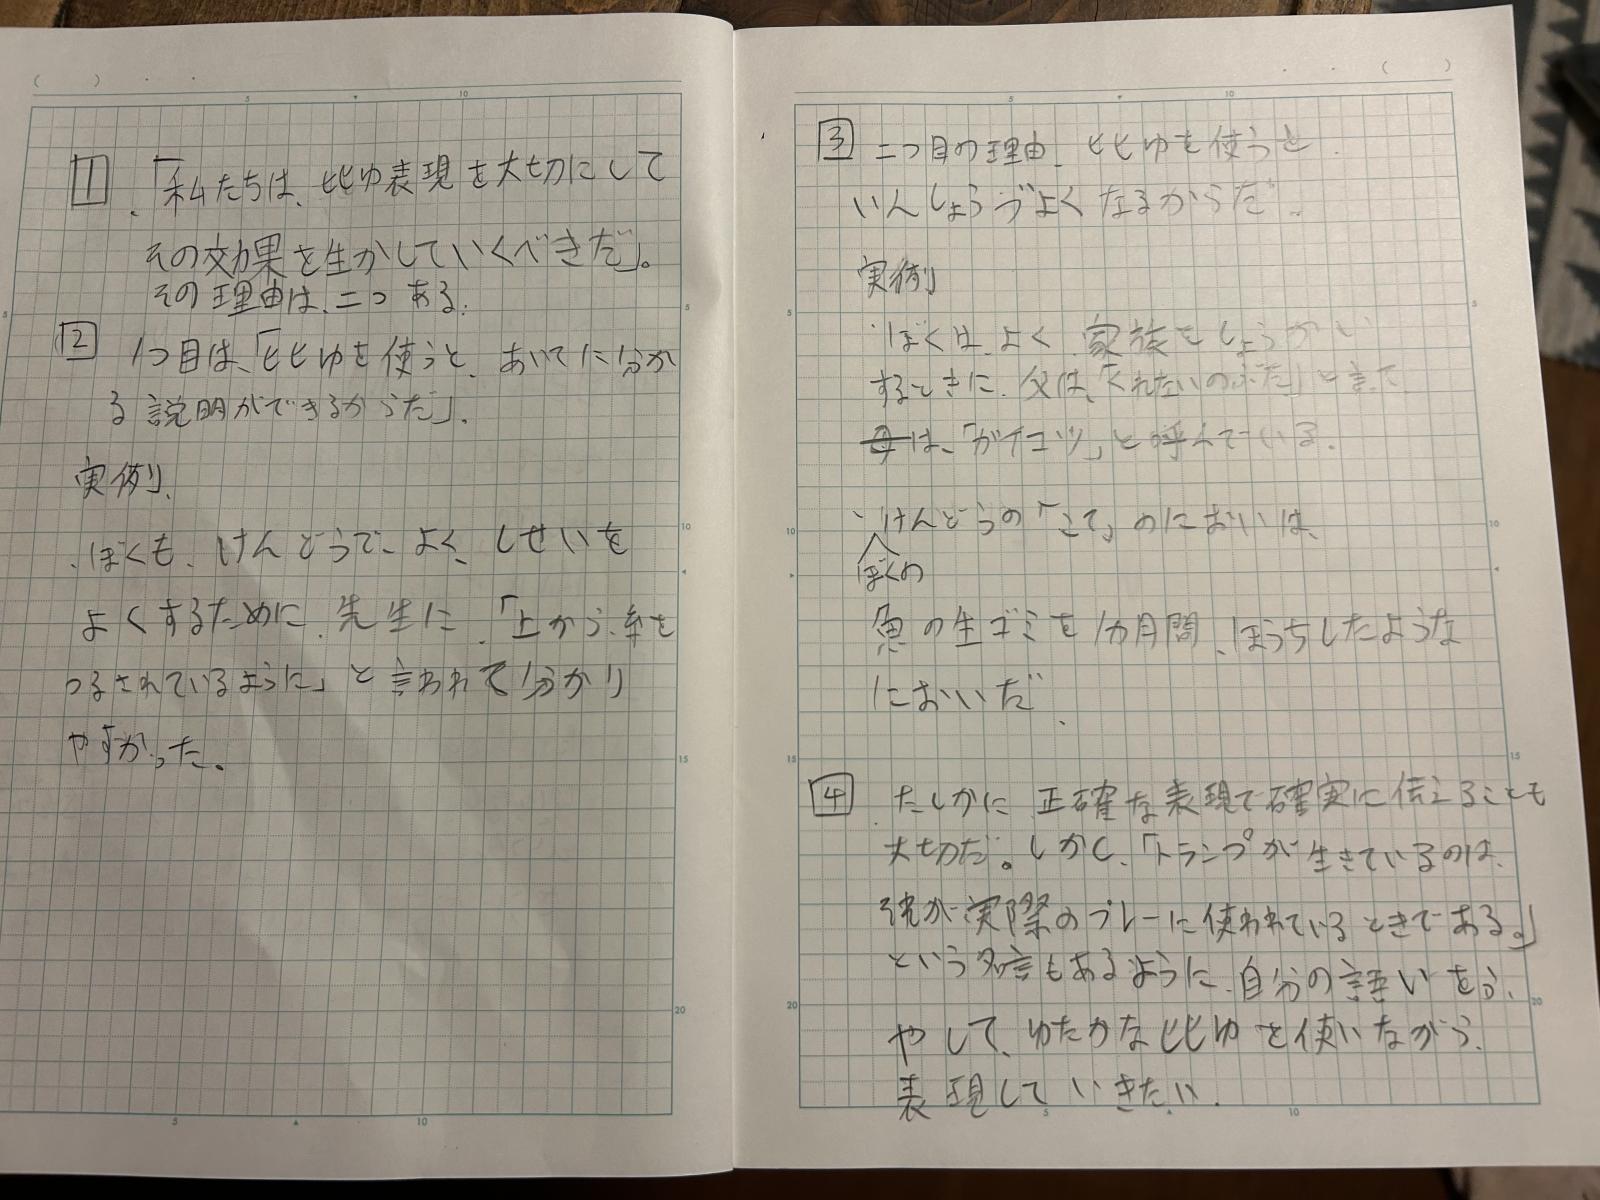 1 「私たちは、比ゆ表現を大切にして
その効果を生かしていくべきだ」。
その理由は、二つある。
2 1つ目は、「比ゆを使うと、あいてに分か
る説明ができるからだ」。
実例、
・ぼくも、けんどうで、よく、しせいを
よくするために、先生に、「上から、糸を
つるされているように」と言われて分かり
やすかった。
3 二つ目の理由、比ゆを使うと
いんしょうづよくなるからだ。
実例
・ぼくは、よく、家族をしょうかい
するときに、父は、「くれないのぶた」と言て
母は、「ガイコツ」と呼んでいる。
・けんどうの「こて」のにおいは、
ぼくの
魚の生ゴミを1カ月間、ほうちしたような
においだ。
4 たしかに、正確な表現で確実に伝えることも
大切だ。しかし、「トランプが生きているのは、
それが実際のプレーに使われているときである。」
という名言もあるように、自分の語いをふ
やして、ゆたかな比ゆを使いながら、
表現していきたい。